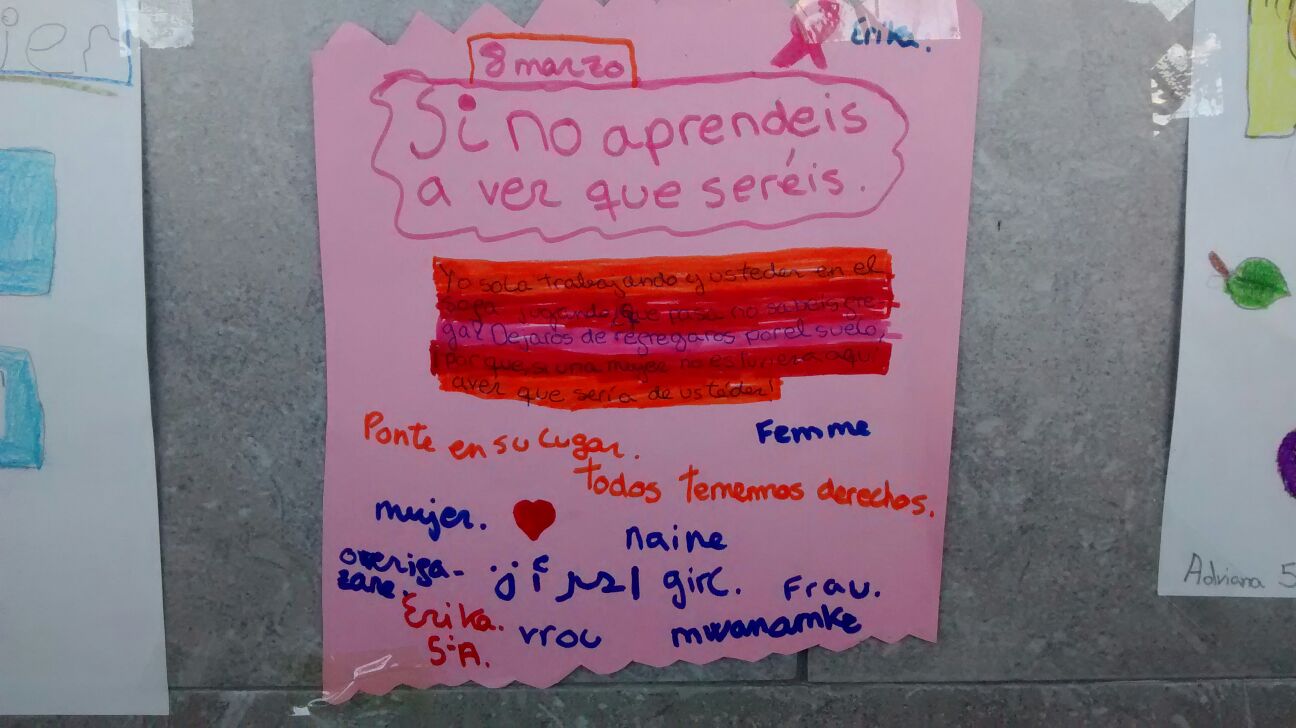 Erika.
8 marzo
Si no aprendeis
a ver que seréis.
Yo sola trabajando y ustedes en el
sofa jugando, Que pasa no sabeis fre-
gar Dejaros de refregaros por el suelo,
porque, si una mujer no estuviera aquí
aver que sería de ustedes!
Ponte en su lugar.
Femme
todos tenemos derechos.
mujer.
naine
girl.
Frau.
Erika.
5ºA.
vrou
mwanamke
Adriana 5